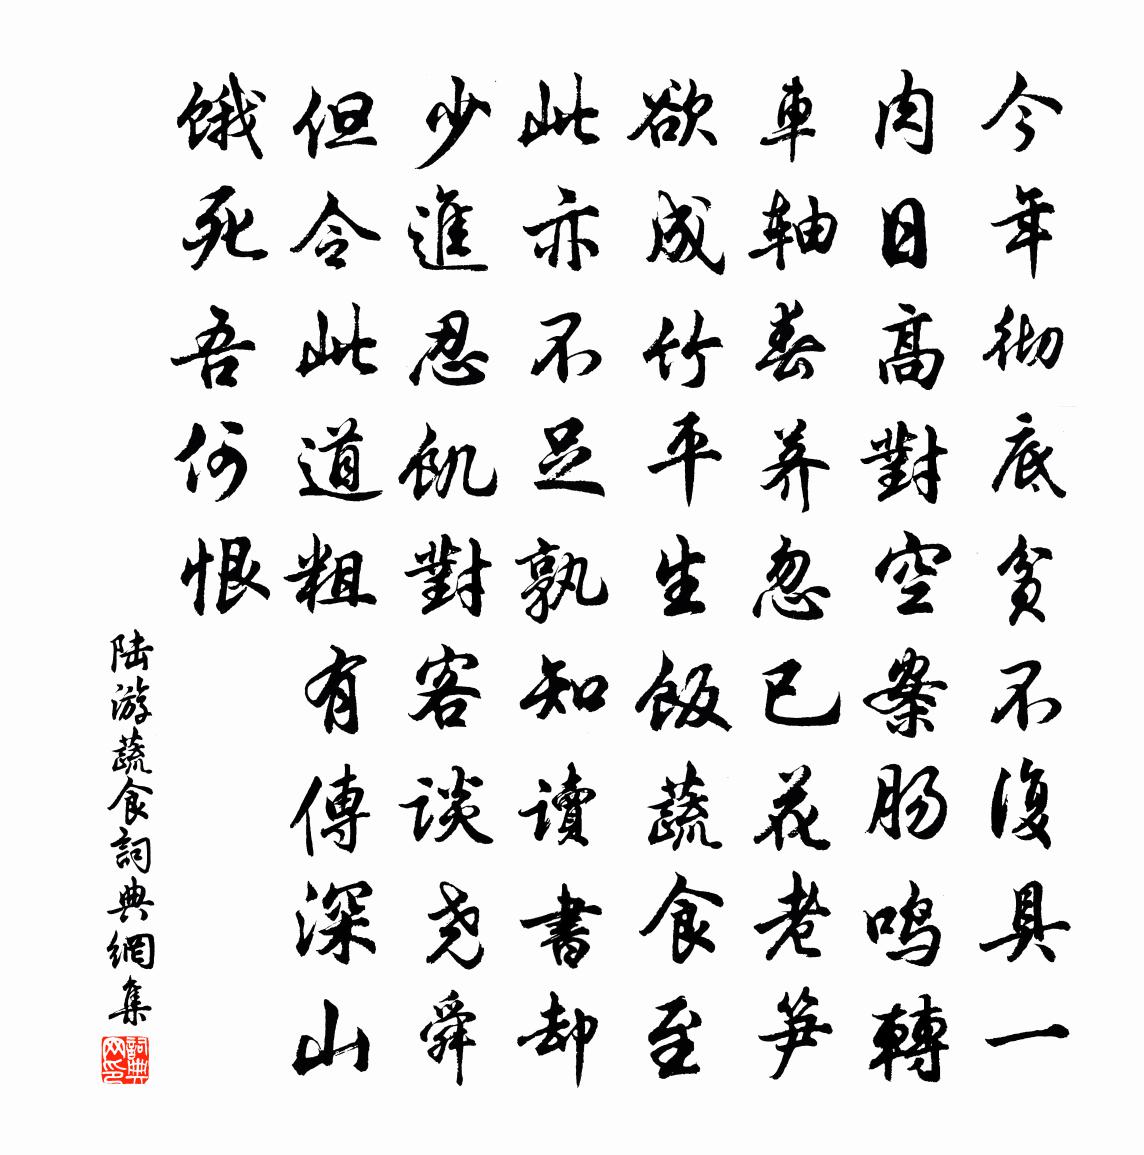 今年彻底贫不復具一
肉日高對空案肠鸣轉
車軸春荠忽已花老笋
欲成竹平生飯蔬食至
此亦不足孰知讀書却
少進忍飢對客談尧舜
但令此道粗有傳深山
餓死吾何恨
陆游蔬食詞典網集
詞典网印